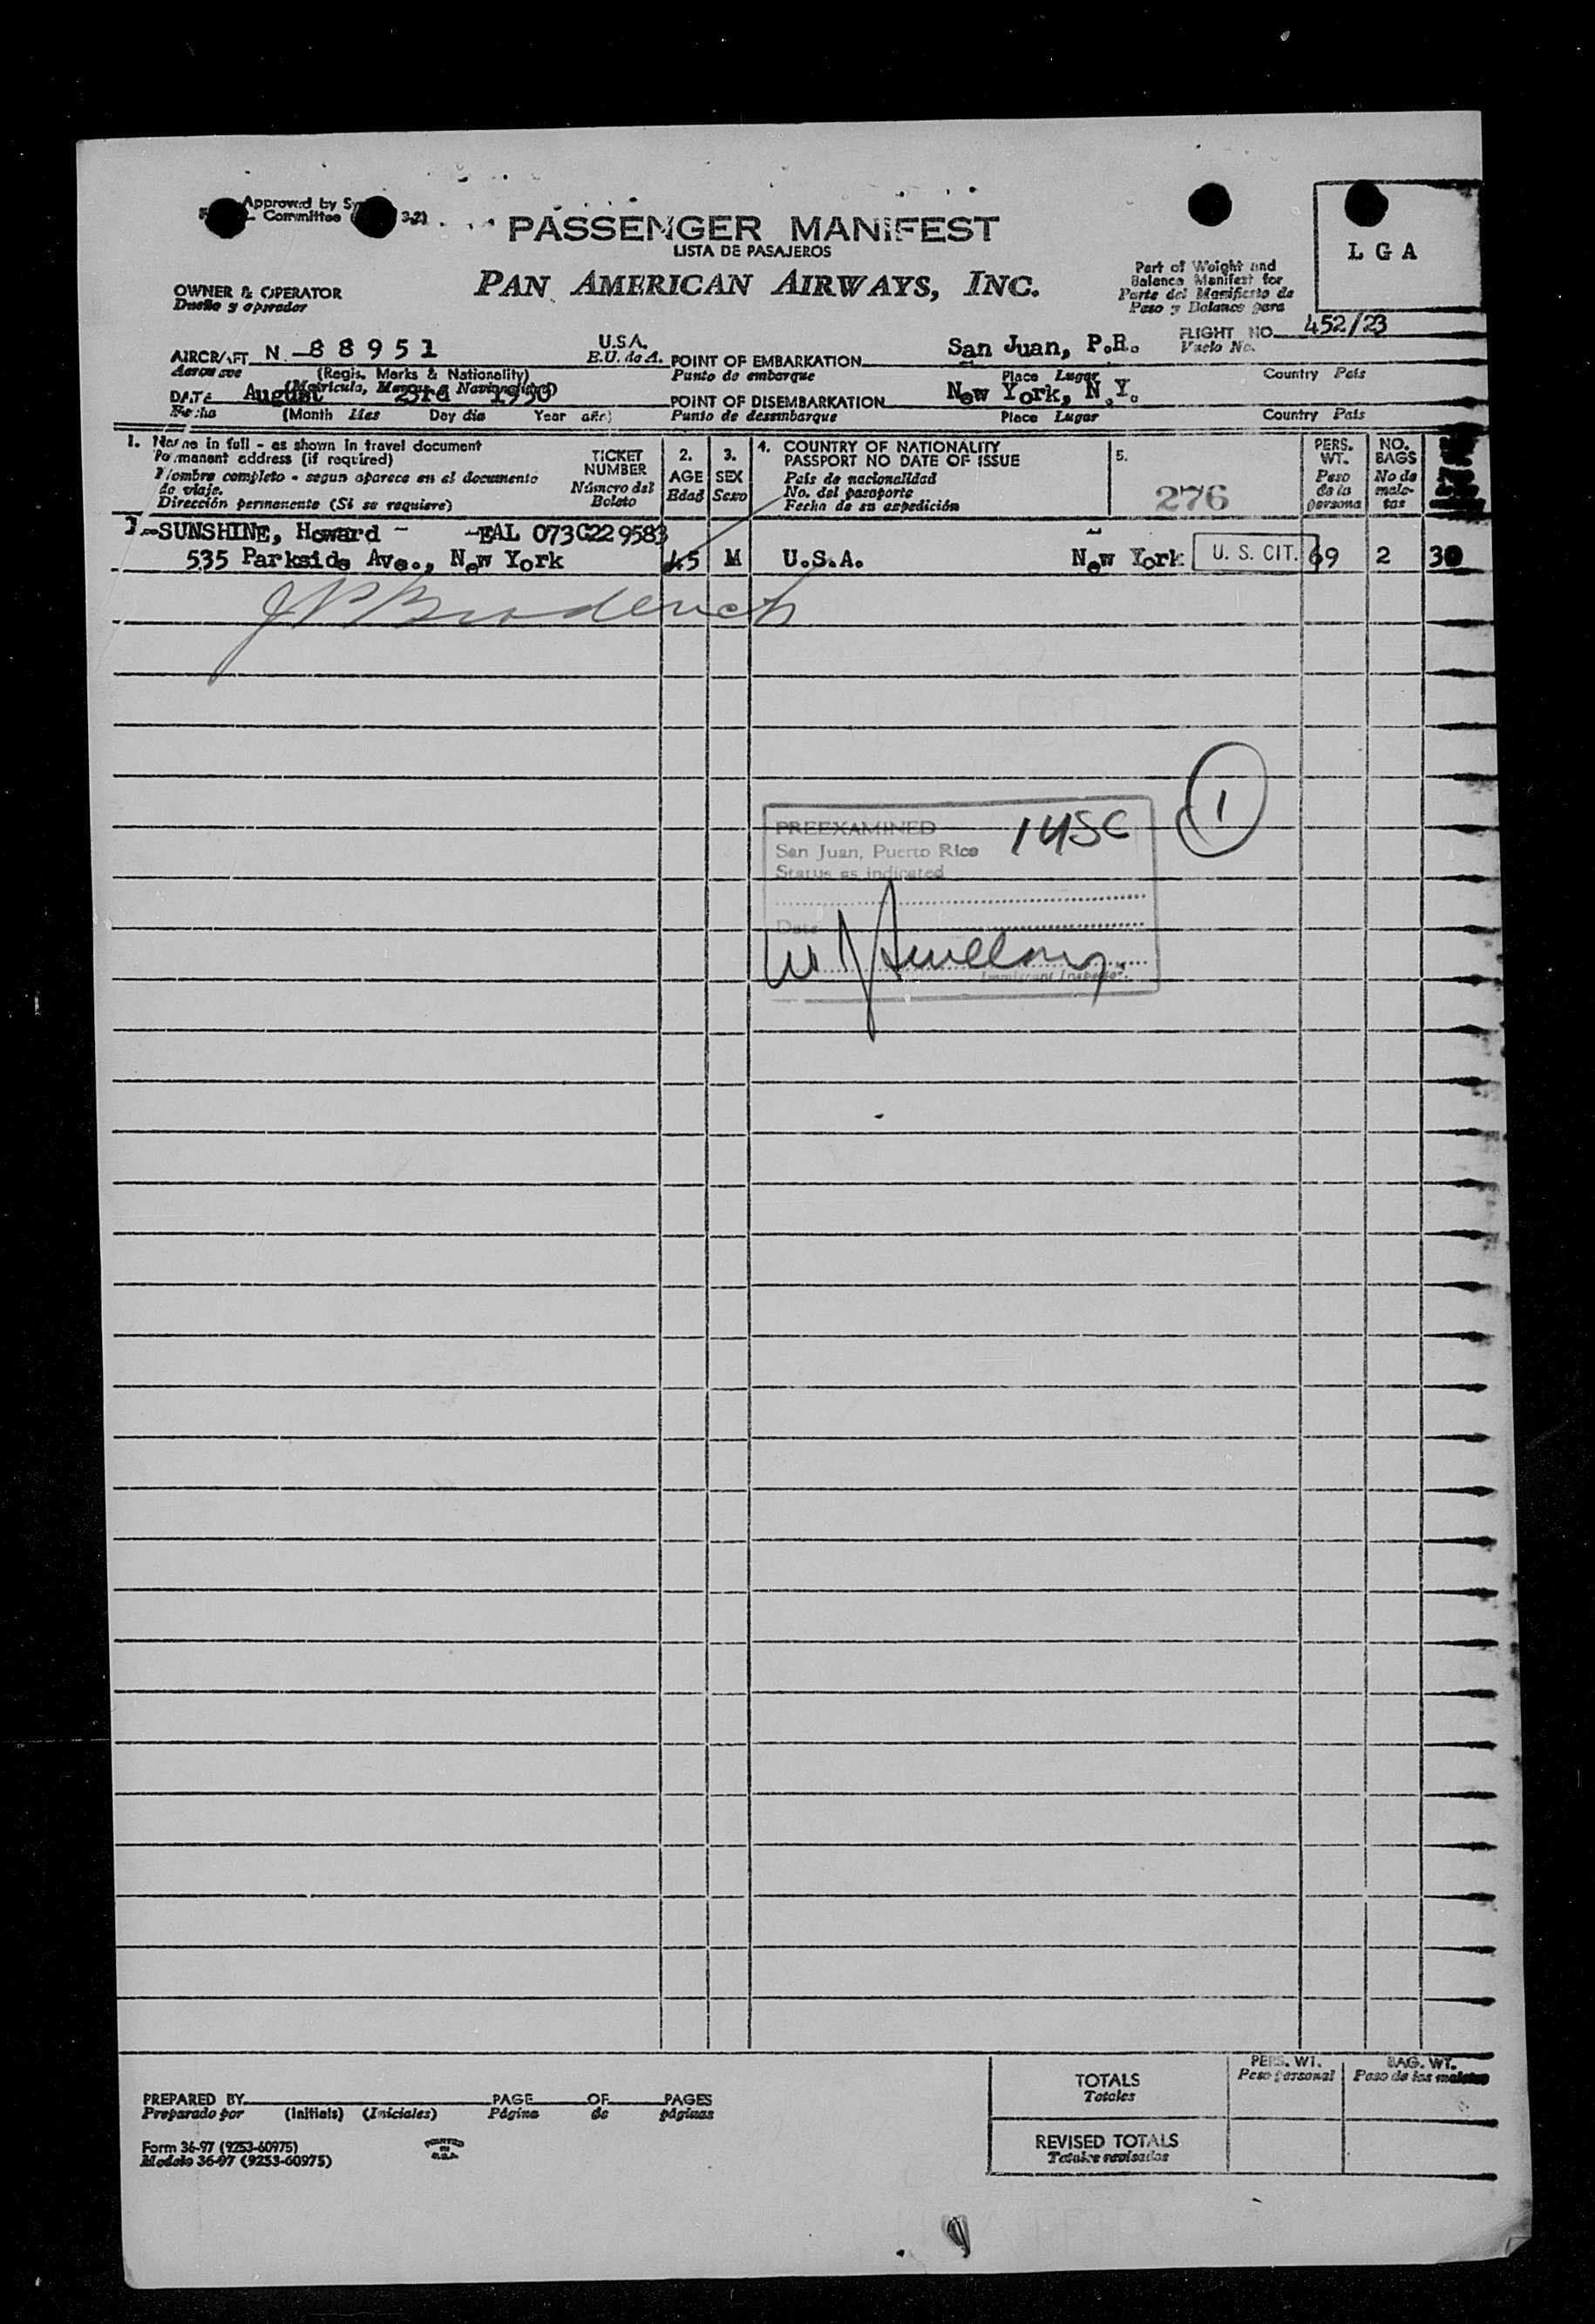 Approved by
Committee 3-21
PASSENGER MANIFEST
LISTA DE PASAJEROS
PAN AMERICAN AIRWAYS, INC.
L G A
Part of Weight and
Balance Manifest for
Parte del Manifiesto de
Peso y Balance para
OWNER & OPERATOR
Dueño y operador
FLIGHT NO. 452/23
Vuelo No.
AIRCRAFT N - 8 8 9 5 1 U.S.A.
Aeronave E.U. de A.
(Regis. Marks & Nationality)
(Matricula, Marcas y Nacionalidad)
POINT OF EMBARKATION San Juan, P.R.
Punto de embarque Place Lugar Country Pais
DATE August 23rd 1950
Fecha (Month Mes Day dia Year año)
POINT OF DISEMBARKATION New York, N.Y.
Punto de desembarque Place Lugar Country Pais
1. Name in full - as shown in travel document
Permanent address (if required)
Nombre completo - segun aparece en el documento
de viaje.
Dirección permanente (Si se requiere)
TICKET
NUMBER
Número del
Boleto
2.
AGE
Edad
3.
SEX
Sexo
4. COUNTRY OF NATIONALITY
PASSPORT NO DATE OF ISSUE
País de nacionalidad
No. del pasaporte
Fecha de su expedición
5.
276
PERS.
WT.
Peso
de la
persona
NO.
BAGS
No de
male-
tas
1.-SUNSHINE, Howard - -EAL 073G229583
535 Parkside Ave., New York 45 M U.S.A. New York U. S. CIT. 69 2 30
J P Broderick
1
PREEXAMINED 1 USC
San Juan, Puerto Rico
Status as indicated
Date
Immigrant Inspector.
PREPARED BY
Preparado por (Initials) (Iniciales)
PAGE OF PAGES
Página de páginas
TOTALS
Totales
PERS. WT.
Peso personal
BAG. WT.
Peso de las maletas
REVISED TOTALS
Totales revisados
Form 36-97 (9253-60975)
Modelo 36-97 (9253-60975)
PRINTED
IN
U.S.A.